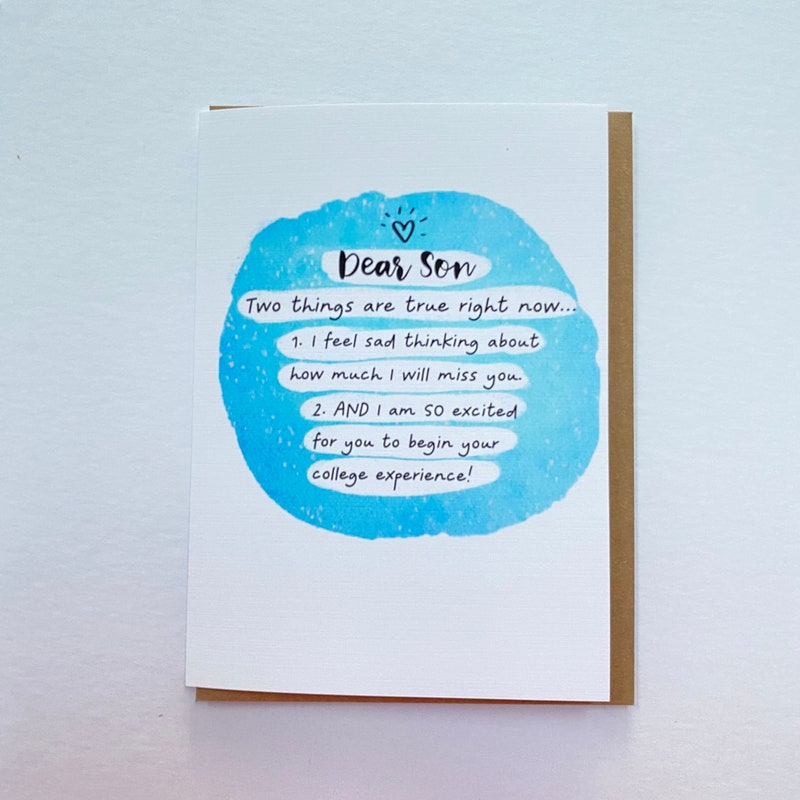 Dear Son
Two things are true right now...
1. I feel sad thinking about
how much I will miss you.
2. AND I am SO excited
for you to begin your
college experience!